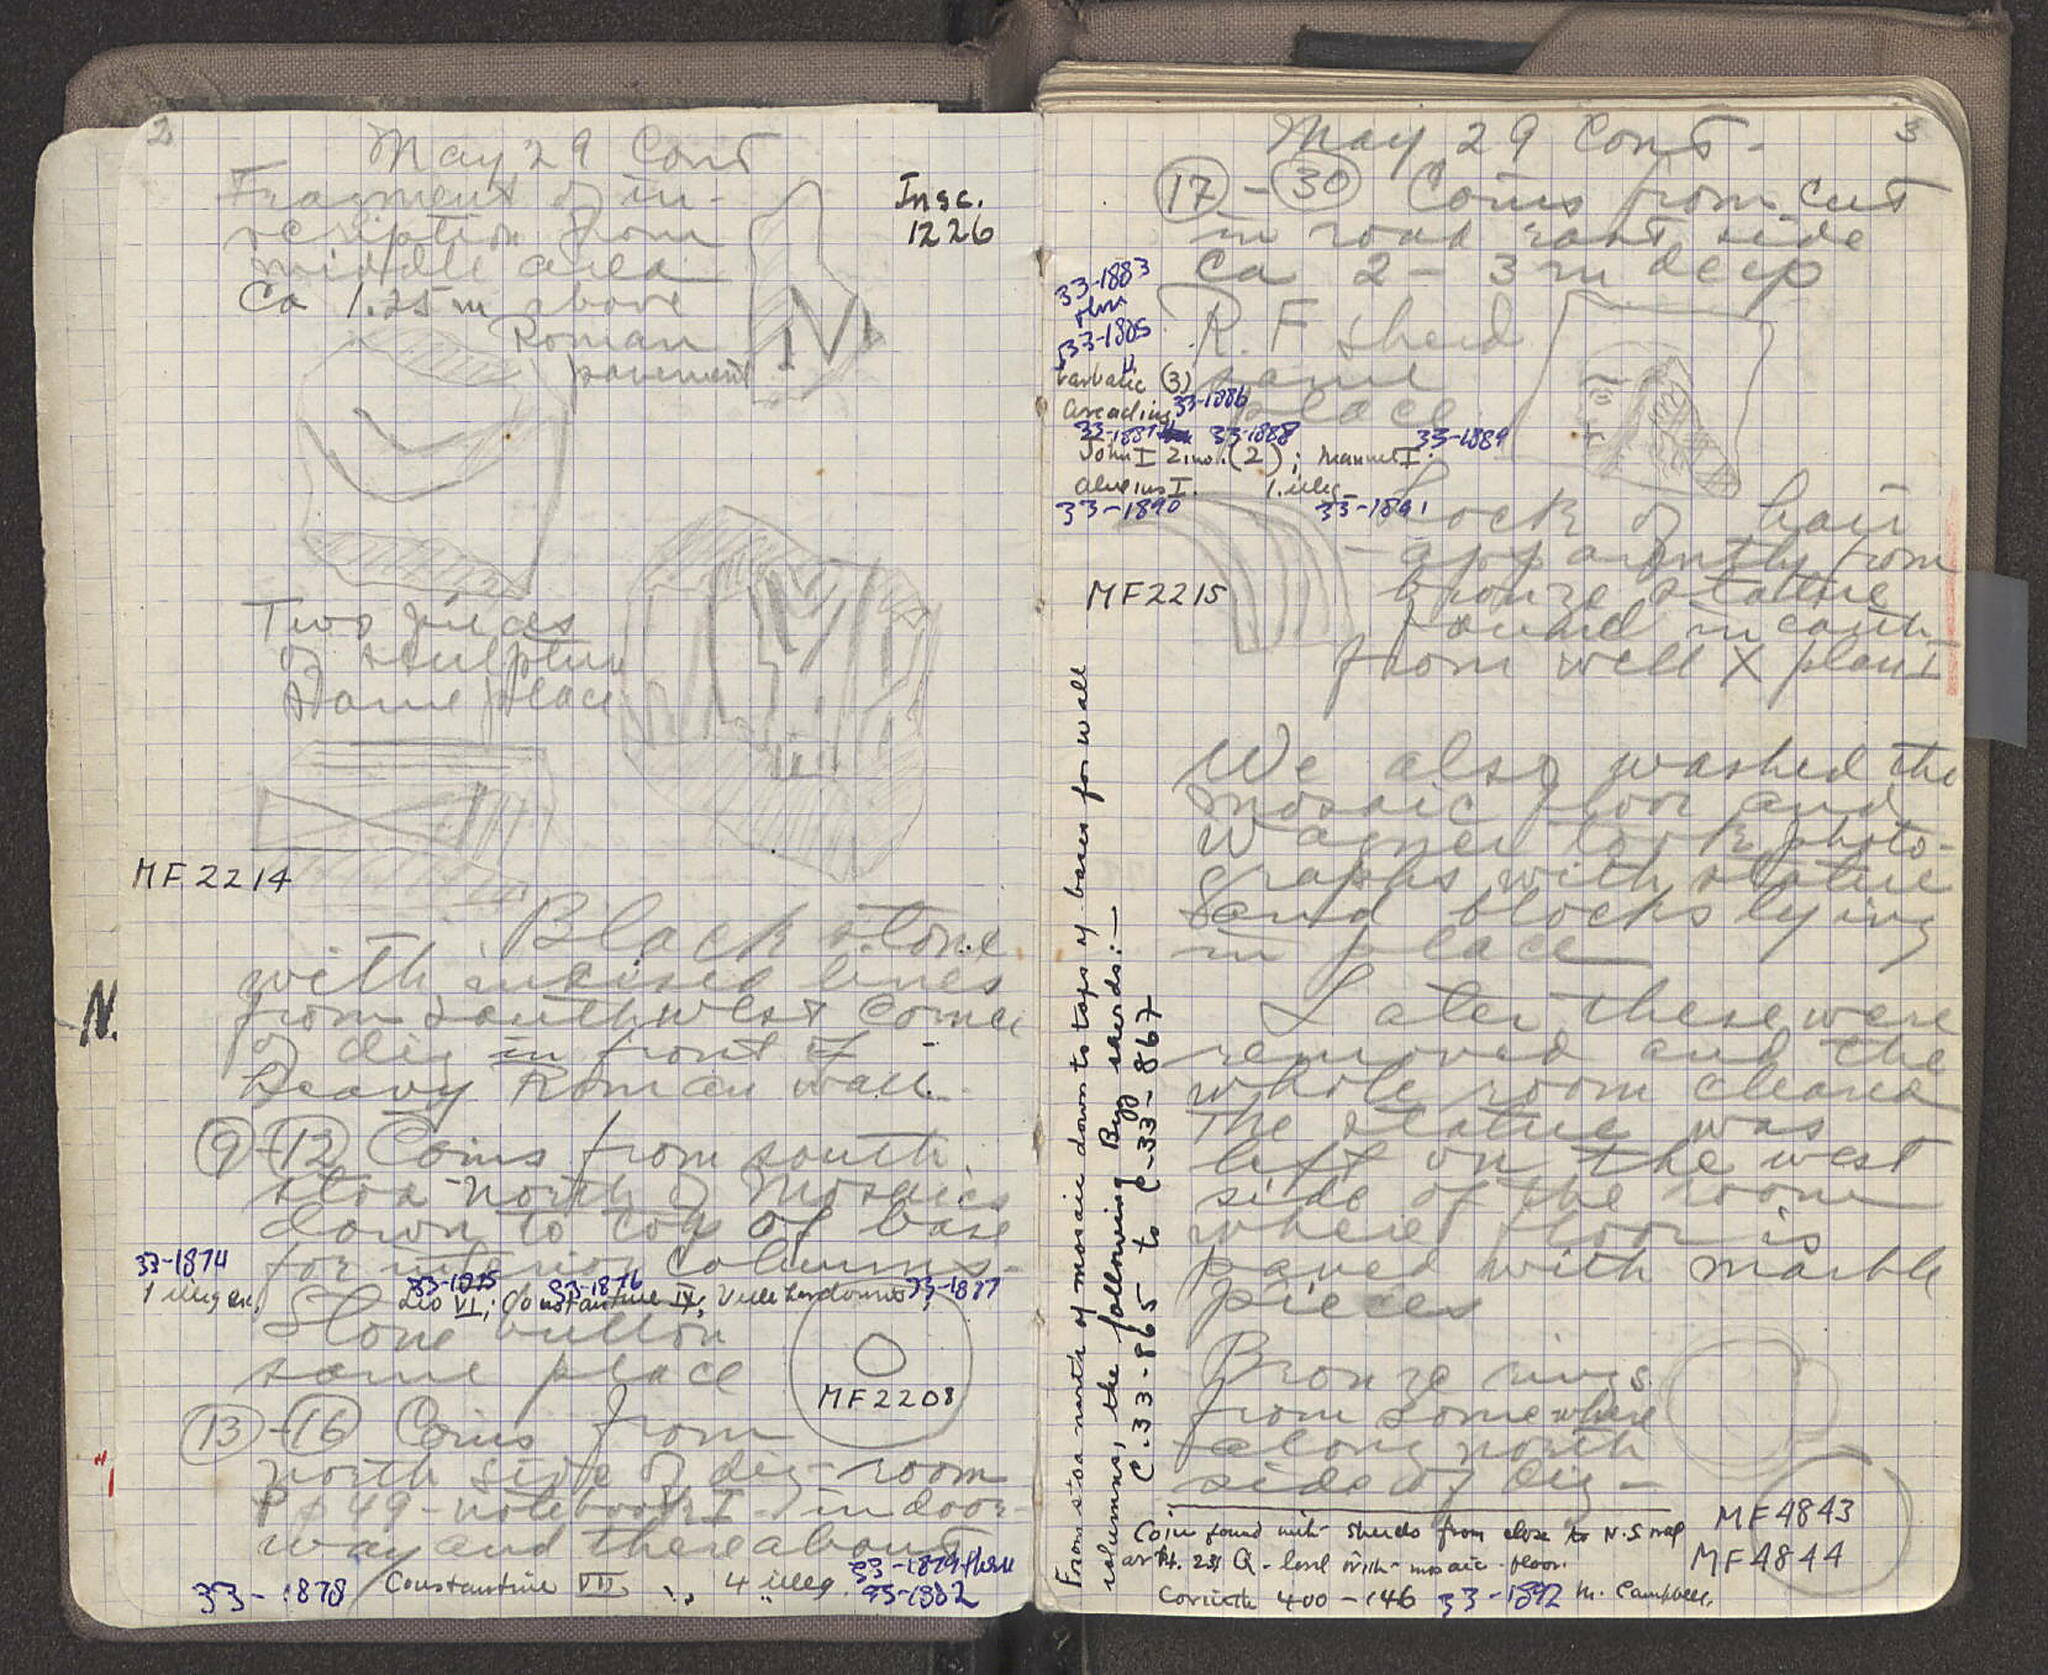 2
May 29 Cont
Fragment of in-
scription from
middle area
Ca 1.25 m above
Roman
pavement
Insc.
1226
Two pieces
of sculpture
Same place
MF 2214
Black stone
with incised lines
from southwest corner
of dig in front of
heavy Roman wall.
N.
9-12 Coins from south
stoa north of Mosaics
down to top of base
for interior columns-
33-1874
33-1875 33-1876 33-1877
1 illeg
Leo VI; Constantine IX; Villehardouin
Stone button
same place
MF 2208
13-16 Coins from
north side of dig - room
P 49 - notebook I - in door-
way and thereabout
33-1878 Constantine VII ; 4 illeg. 33-1879 thru
33-1882
3
May 29 Cont-
17-30 Coins from cut
in road east side
Ca 2-3 m deep
33-1883
thru
33-1885
barbaric (3)
R. F sherd
same
place
Arcadius 33-1886
33-1887 33-1888 33-1889
John I Zim. (2); Manuel I;
Alexius I. 1 illeg
33-1890 33-1891
Lock of hair
- apparently from
bronze statue
found in earth
from well X plan I
MF 2215
We also washed the
mosaic floor and
Wagner took photo-
graphs with statue
and blocks lying
in place
Later these were
removed and the
whole room cleaned
The statue was
left on the west
side of the room
where floor is
paved with marble
pieces
Bronze rings
from somewhere
along north
side of dig -
MF 4843
MF 4844
Coin found with sherds from close to N.S wall
at Q - level with mosaic floor.
Corinth 400-146 33-1892 M. Campbell.
From stoa north of mosaic down to tops of bases for wall
columns, the following Byz sherds:-
C-33-865 to C-33-867